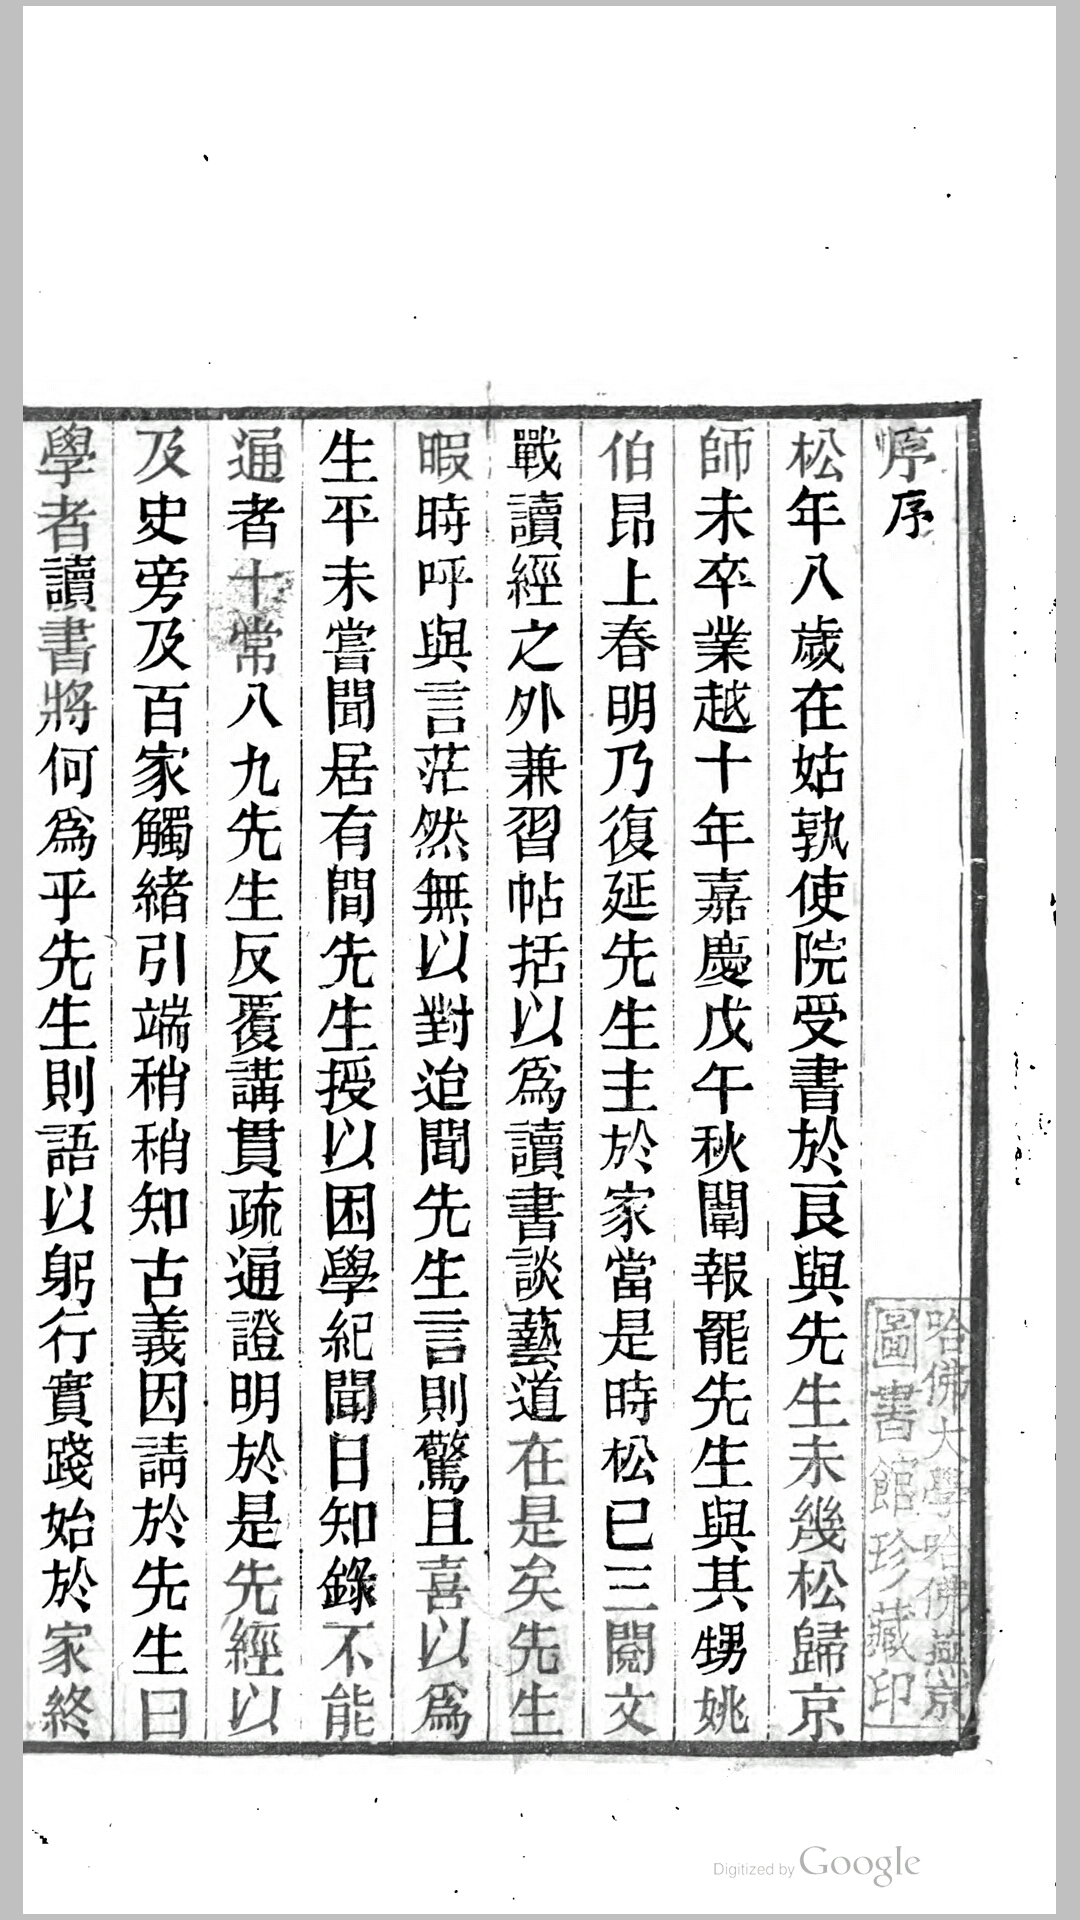 序序
松年八歲在姑孰使院受書於艮與先生未幾松歸京
師未卒業越十年嘉慶戊午秋闈報罷先生與其甥姚
伯昂上春明乃復延先生主於家當是時松已三閱文
戰讀經之外兼習帖括以爲讀書談藝道在是矣先生
暇時呼與言茫然無以對迨聞先生言則驚且喜以爲
生平未嘗聞居有間先生授以困學紀聞日知錄不能
通者十常八九先生反覆講貫疏通證明於是先經以
及史旁及百家觸緒引端稍稍知古義因請於先生曰
學者讀書將何爲乎先生則語以躬行實踐始於家終
哈佛大學哈佛燕京
圖書館珍藏印
Digitized by Google